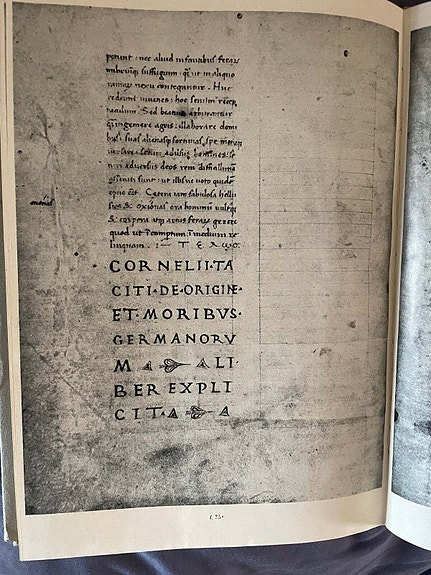 petunt : nec aliud infantibus ferarū
imbriumq; suffugium : q̃ ut in aliquo
ramorū nexu contegantur . Huc
redeunt iuuenes : hoc senum recep
taculum . Sed beatius arbitrantur
q̃ ingemere agris : illaborare domi
bus : suas alienasq; fortunas spe metuq;
uersare . securi aduersus homines : se
curi aduersus deos rem difficillimā
ut illis ne uoto quidē
opus eēt . Cetera iam fabulosa hellu
sios & oxionas ora hominum uultusq;
& corpora atq; artus ferarū gerere
quod ut īcompertum ī medium re
linquam . Τ Ε Λ ω Σ .
CORNELII·TA
CITI·DE·ORIGINE·
ET·MORIBVS·
GERMANORV
M LI·
BER EXPLI
CIT·
f. 75